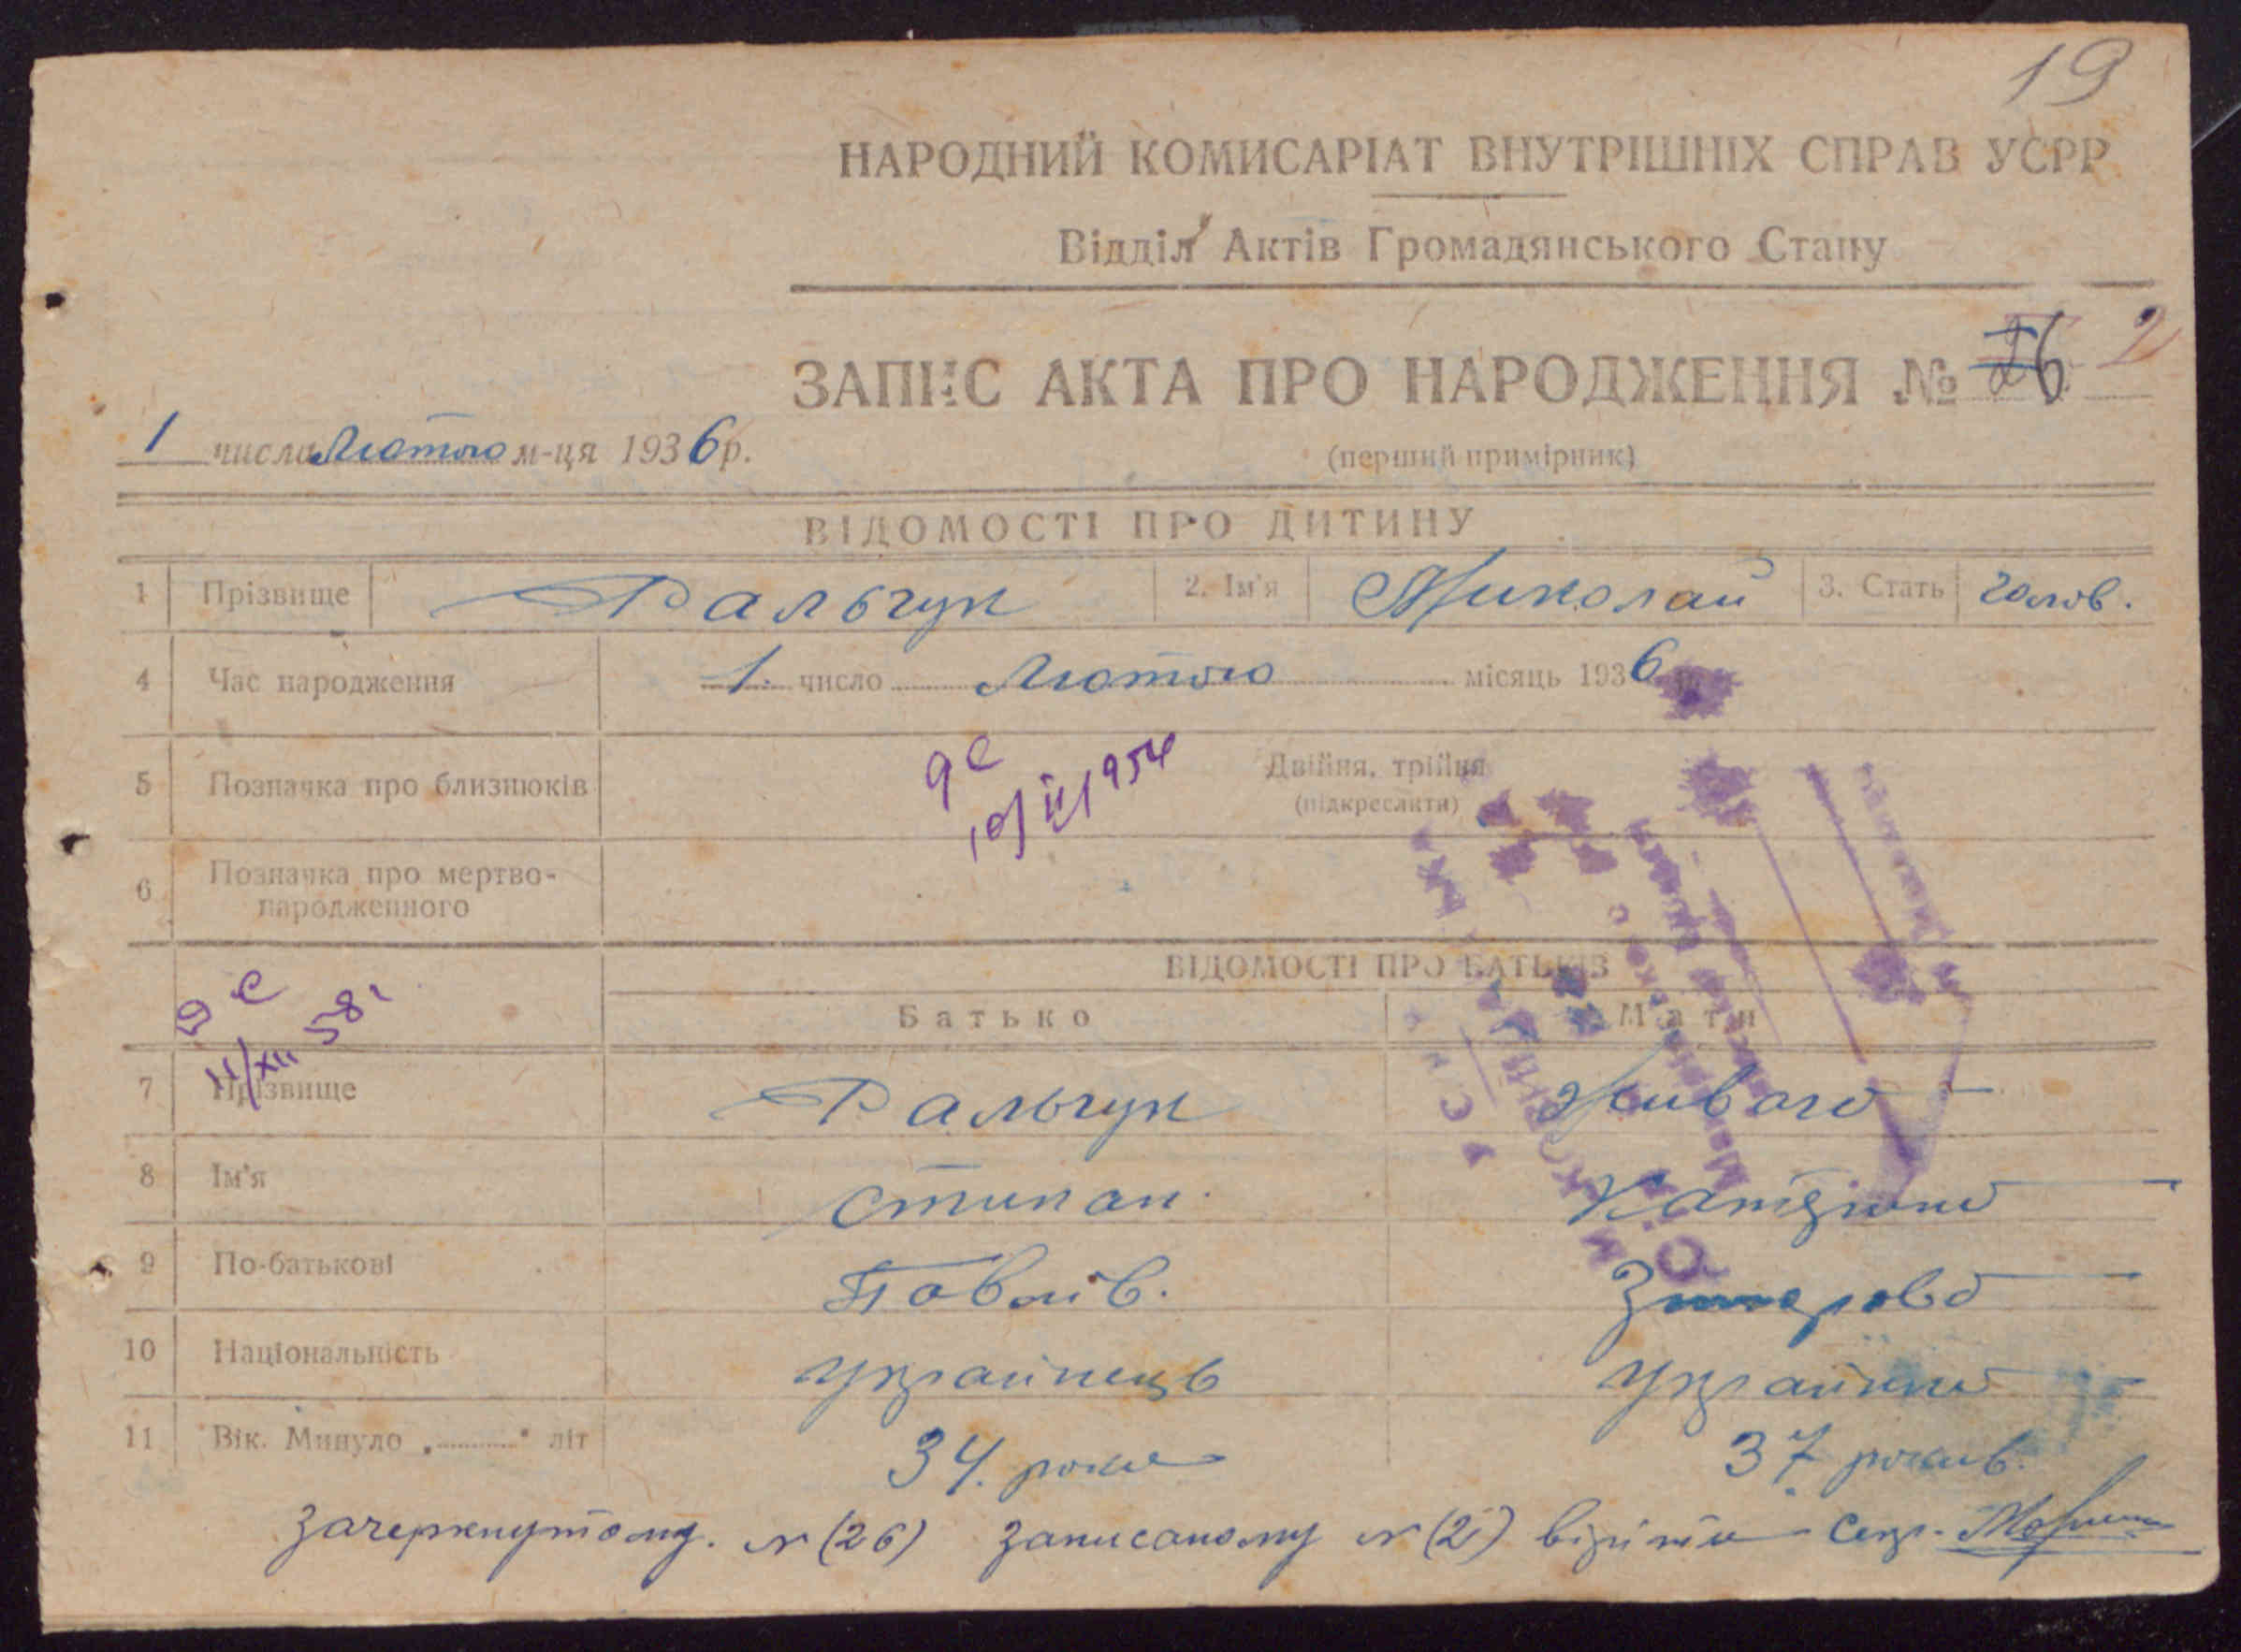 19
НАРОДНИЙ КОМИСАРІАТ ВНУТРІШНІХ СПРАВ УСРР
Відділ Актів Громадянського Стану
ЗАПИС АКТА ПРО НАРОДЖЕННЯ № 26 2
1 числа Лютого м-ця 1936 р.
(перший примірник)
ВІДОМОСТІ ПРО ДИТИНУ
1 Прізвище Ральчук 2. Ім'я Миколай 3. Стать чолов.
4 Час народження 1. число Лютого місяць 1936
5 Позначка про близнюків Двійня, трійня
(підкреслити)
10/II 1954
6 Позначка про мертво-
народженного
ВІДОМОСТІ ПРО БАТЬКІВ
Батько Мати
11/XII 58 г
7 Прізвище Ральчук
8 Ім'я Стипан
9 По-батькові Павлів.
10 Національність Українець Українка
11 Вік. Минуло „ " літ 34. роки 37 років.
Зачеркнутому. № (26) Записаному № (2) вірити Секр.